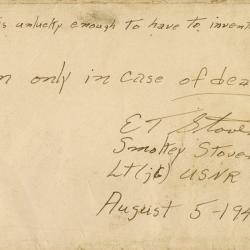 is unlucky enough to have to invent
n only in case of dea
E T Stove
Smokey Stove
Lt(jg) USNR
August 5-194